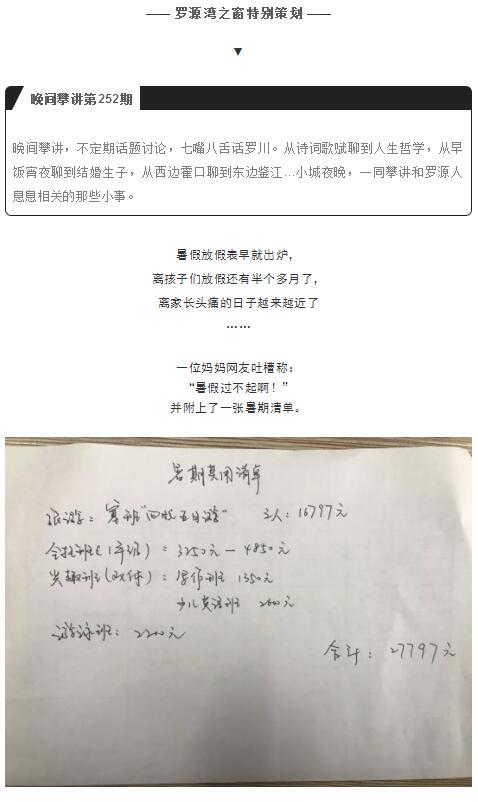 —— 罗源湾之窗特别策划 ——
▼
晚间攀讲第252期
晚间攀讲，不定期话题讨论，七嘴八舌话罗川。从诗词歌赋聊到人生哲学，从早
饭宵夜聊到结婚生子，从西边霍口聊到东边鉴江…小城夜晚，一同攀讲和罗源人
息息相关的那些小事。
暑假放假表早就出炉，
离孩子们放假还有半个多月了，
离家长头痛的日子越来越近了
……
一位妈妈网友吐槽称：
“暑假过不起啊！”
并附上了一张暑期清单。
暑期费用清单
旅游：塞班“四晚五日游” 3人：16797元
全托班（1年级）：3250元—4850元
兴趣班：写作班 1350元
少儿英语班 2600元
游泳班：2200元
合计：27797元